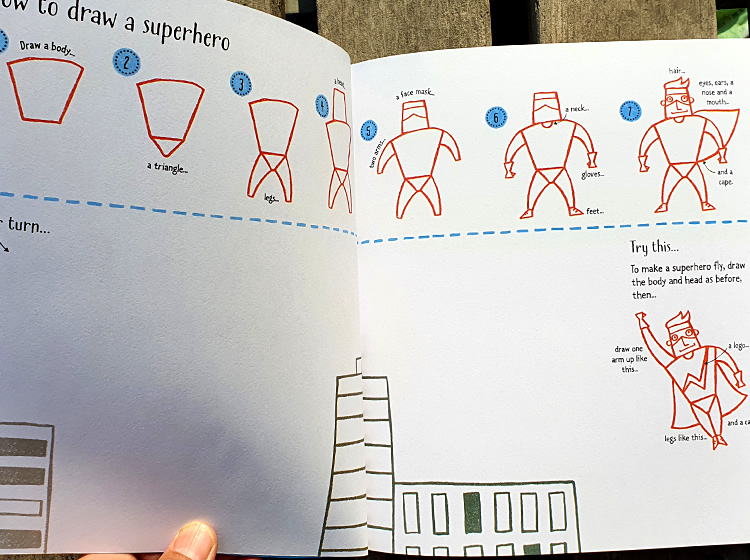 ow to draw a superhero
Draw a body...
2
a triangle...
3
legs...
4
a head...
5
two arms...
a face mask...
6
a neck...
gloves...
feet...
7
hair...
eyes, ears, a
nose and a
mouth...
and a
cape.
r turn...
Try this...
To make a superhero fly, draw
the body and head as before,
then...
draw one
arm up like
this...
a logo...
legs like this...
and a ca